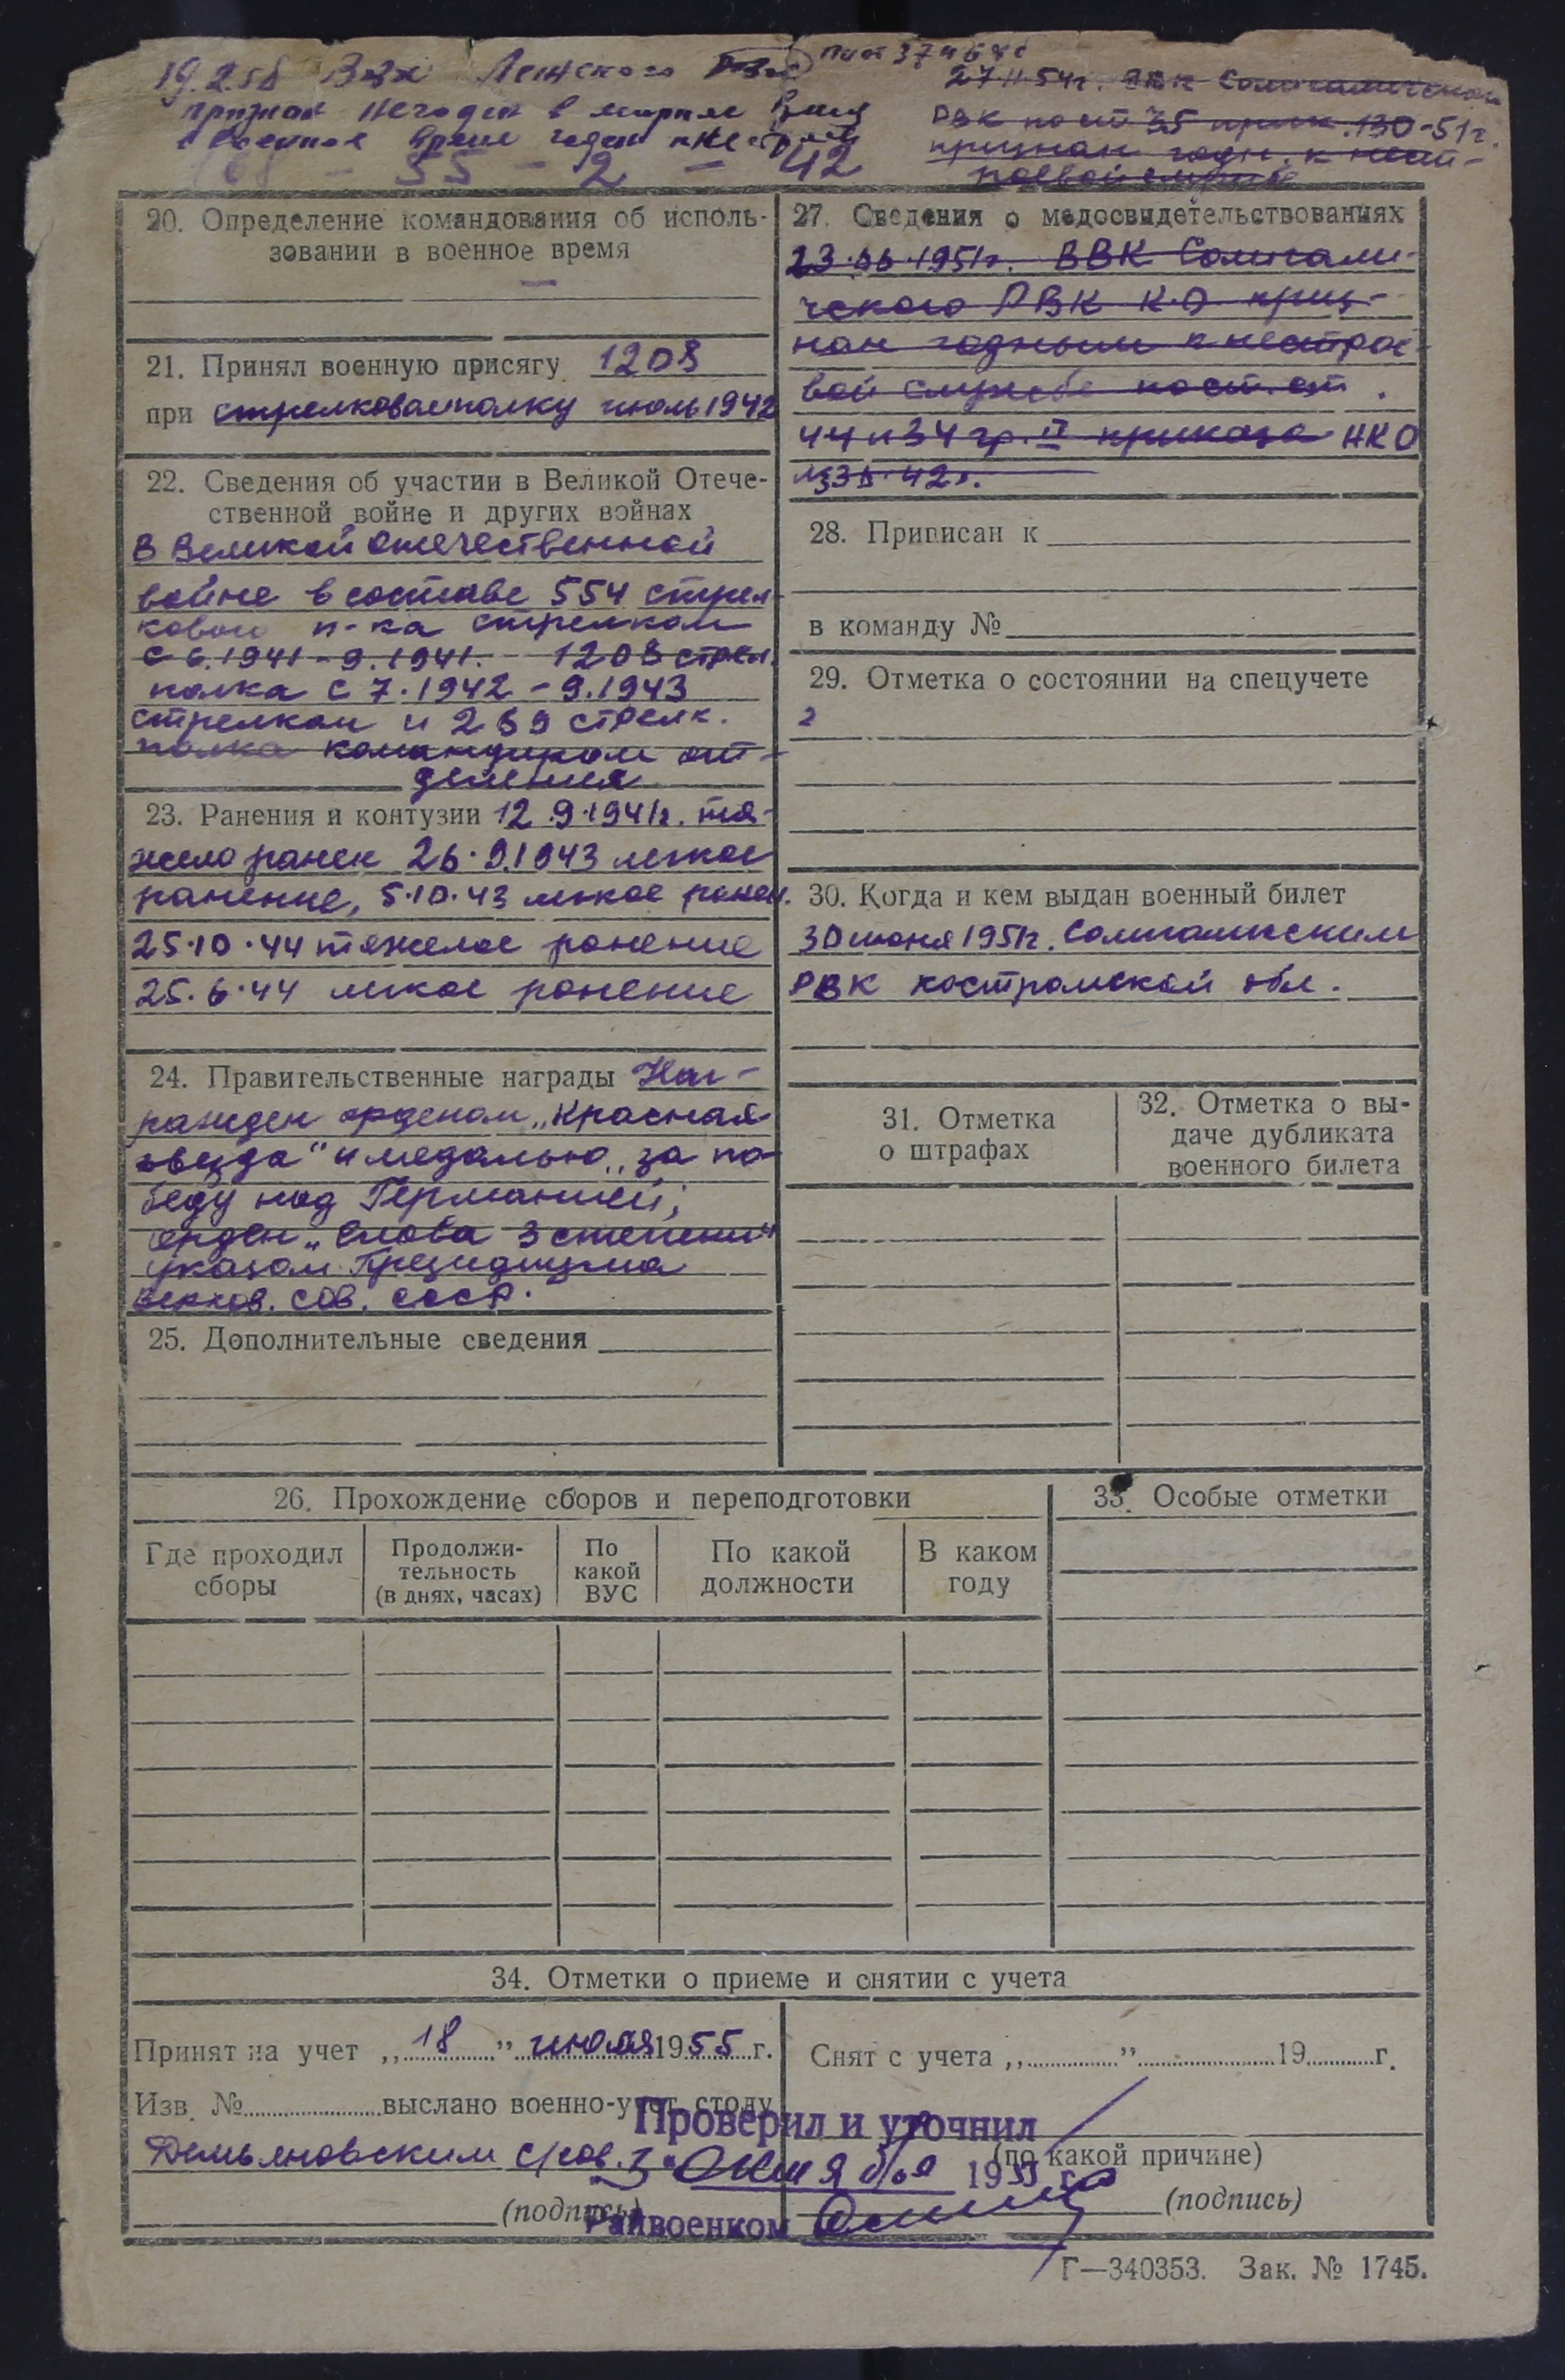 19.2.58 ВВК Ленского РВК
признан негоден в мирное время
в военное время годен к нестроев
55 - 2 - 42
РВК по ст 35 прик. 130-51г.
признан годн. к нест-
роевой службе
20. Определение командования об исполь-
зовании в военное время
—
21. Принял военную присягу 1208
при стрелковом полку июль 1942
22. Сведения об участии в Великой Отече-
ственной войне и других войнах
В Великой Отечественной
войне в составе 554 стрел-
кового п-ка стрелком
с 6.1941 - 9.1941. 1208 стрел.
полка с 7.1942 - 9.1943
стрелком и 289 стрелк.
полка командиром от-
деления
23. Ранения и контузии 12.9.1941г. тя-
жело ранен 26.9.1943 легкое
ранение, 5.10.43 легкое ранен.
25.10.44 тяжелое ранение
25.6.44 легкое ранение
24. Правительственные награды Наг-
ражден орденом „Красная
звезда" и медалью „за по-
беду над Германией;
орден „Слава 3 степени"
указом Президиума
Верхов. Сов. СССР.
25. Дополнительные сведения
27. Сведения о медосвидетельствованиях
23.06.1951г. ВВК Солигали-
чского РВК К.О. приз-
нан годным к нестрое-
вой службе по ст. ст.
44 и 34 гр. II приказа НКО
№336.42г.
28. Приписан к
в команду №
29. Отметка о состоянии на спецучете
2
30. Когда и кем выдан военный билет
30 июня 1951г. Солигаличским
РВК Костромской обл.
31. Отметка
о штрафах
32. Отметка о вы-
даче дубликата
военного билета
26. Прохождение сборов и переподготовки
Где проходил
сборы
Продолжи-
тельность
(в днях, часах)
По
какой
ВУС
По какой
должности
В каком
году
33. Особые отметки
34. Отметки о приеме и снятии с учета
Принят на учет „18" июля 1955 г.
Изв. № выслано военно-учет. столу
Демьяновским с/сов.
(подпись)
Снят с учета „ " 19 г.
(по какой причине)
(подпись)
Проверил и уточнил
"3" октября 1955 г.
Райвоенком
Г—340353. Зак. № 1745.